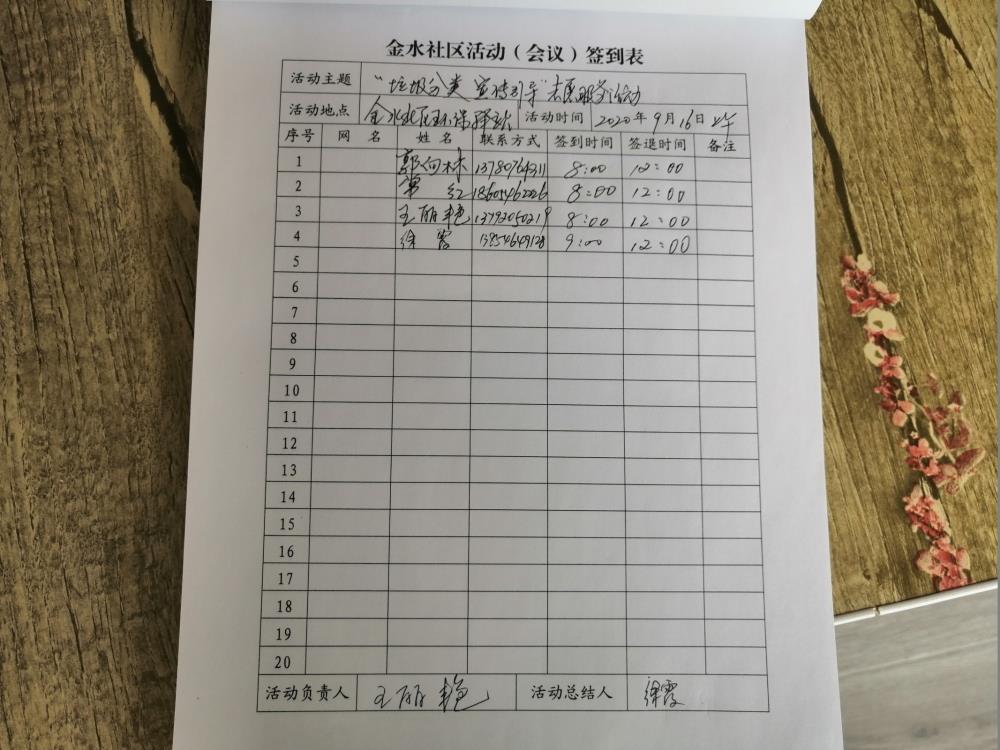 金水社区活动（会议）签到表
活动主题 "垃圾分类宣传引导"志愿服务活动
活动地点 金水社区 活动时间 2020年9月16日上午
序号 网 名 姓 名 联系方式 签到时间 签退时间 备注
1 郭向林 13780764311 8:00 12:00
2 常 红 18605462226 8:00 12:00
3 王丽艳 13792050219 8:00 12:00
4 徐 霞 13854649128 9:00 12:00
5
6
7
8
9
10
11
12
13
14
15
16
17
18
19
20
活动负责人 王丽艳 活动总结人 徐霞